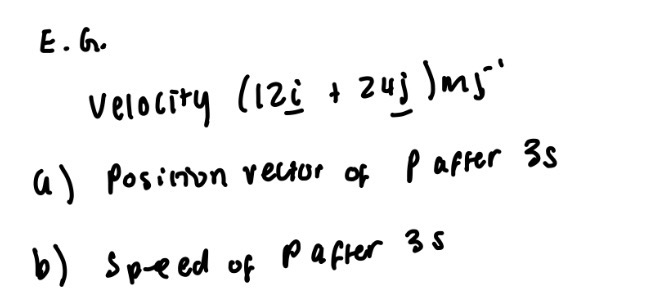 E.G.
Velocity (12i + 24j)ms⁻¹
a) Position vector of P after 3s
b) Speed of P after 3s